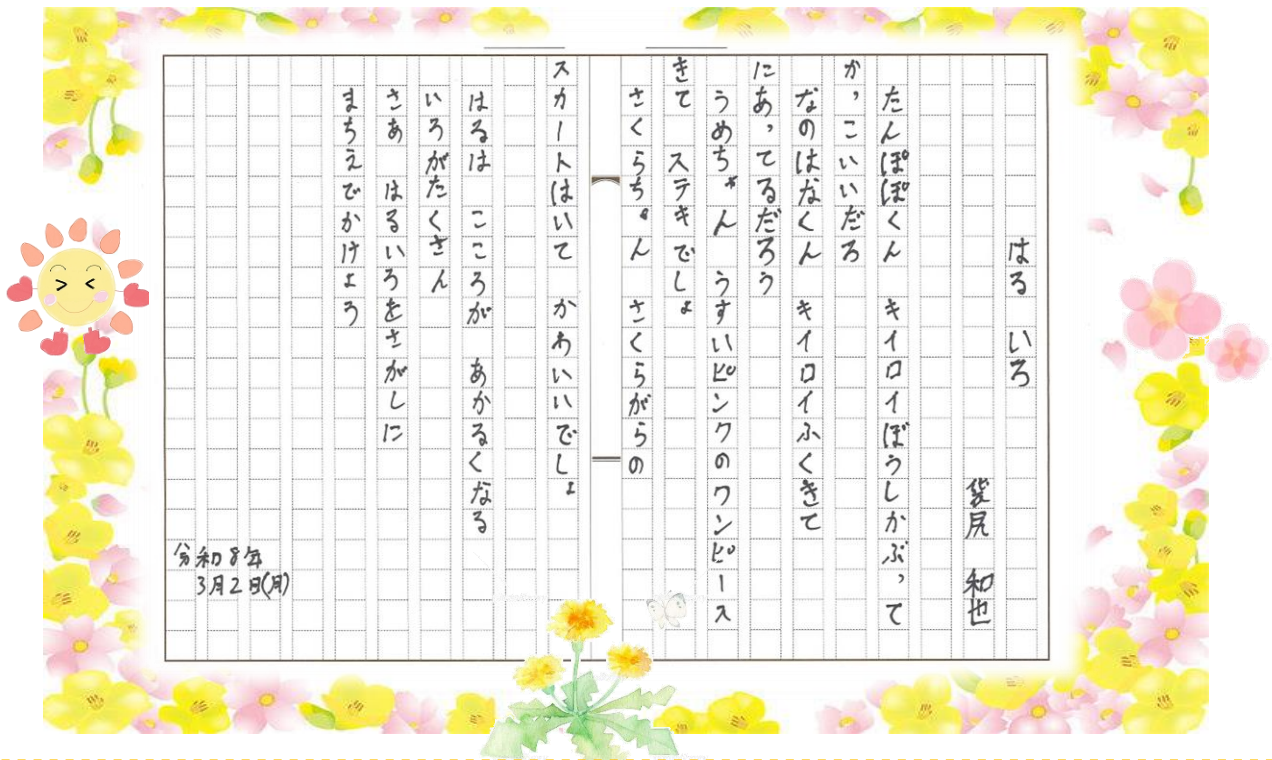 はる いろ
袋尻 和也
たんぽぽくん キイロイぼうしかぶって
かっこいいだろ
なのはなくん キイロイふくきて
にあってるだろう
うめちゃん うすいピンクのワンピース
きて ステキでしょ
さくらちゃん さくらがらの
スカートはいて かわいいでしょ
はるは こころが あかるくなる
いろがたくさん
さあ はるいろをさがしに
まちえでかけよろ
令和8年
3月2日(月)